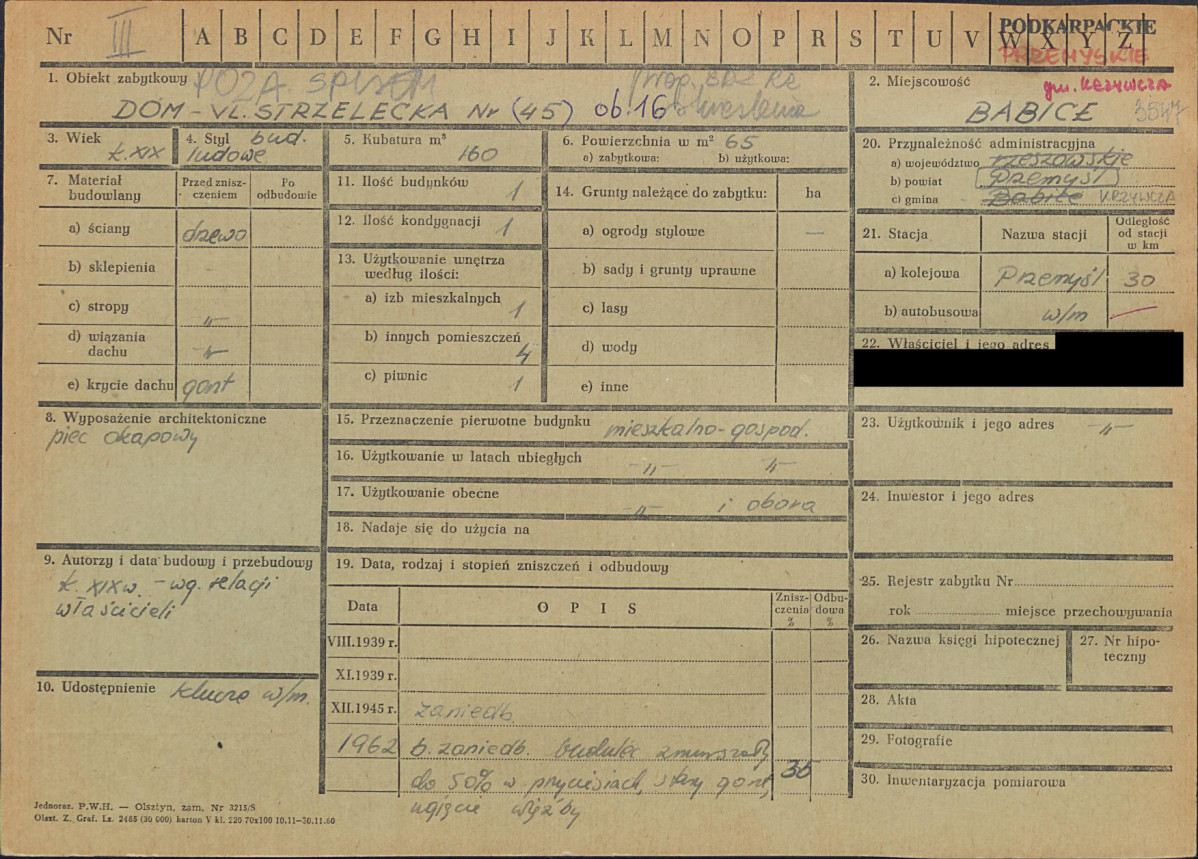 Nr III A B C D E F G H I J K L M N O P R S T U V W X Y Z
PODKARPACKIE
PRZEMYSKIE
1. Obiekt zabytkowy POZA SPISEM
DOM - UL. STRZELECKA Nr (45) ob. 16
2. Miejscowość gm. KRZYWCZA
BABICE 3547
3. Wiek
k. XIX
4. Styl bud.
ludowe
5. Kubatura m³
160
6. Powierzchnia w m² 65
a) zabytkowa: b) użytkowa:
7. Materiał budowlany
Przed zniszczeniem
Po odbudowie
a) ściany drzewo
b) sklepienia -
c) stropy -„-
d) wiązania dachu -„-
e) krycie dachu gont
8. Wyposażenie architektoniczne
piec okapowy
9. Autorzy i data budowy i przebudowy
k. XIX w. - wg. relacji
właścicieli
10. Udostępnienie klucze w/m.
11. Ilość budynków 1
12. Ilość kondygnacji 1
13. Użytkowanie wnętrza
według ilości:
a) izb mieszkalnych 1
b) innych pomieszczeń 4
c) piwnic 1
14. Grunty należące do zabytku: ha
a) ogrody stylowe —
b) sady i grunty uprawne
c) lasy
d) wody
e) inne
15. Przeznaczenie pierwotne budynku mieszkalno-gospod.
16. Użytkowanie w latach ubiegłych -„- -„-
17. Użytkowanie obecne -„- i obora
18. Nadaje się do użycia na
19. Data, rodzaj i stopień zniszczeń i odbudowy
Data OPIS Zniszczenia % Odbudowa %
VIII.1939 r.
XI.1939 r.
XII.1945 r. zaniedb.
1962 b. zaniedb. budulec zmurszały
do 50% w przyciesiach, stary gont, 35
ugięcie więźby
20. Przynależność administracyjna
a) województwo rzeszowskie
b) powiat Przemyśl
c) gmina Babice KRZYWCZA
21. Stacja Nazwa stacji Odległość od stacji w km
a) kolejowa Przemyśl 30
b) autobusowa w/m —
22. Właściciel i jego adres
23. Użytkownik i jego adres -„-
24. Inwestor i jego adres
25. Rejestr zabytku Nr
rok miejsce przechowywania
26. Nazwa księgi hipotecznej
27. Nr hipoteczny
28. Akta
29. Fotografie
30. Inwentaryzacja pomiarowa
Jednoraz. P.W.H. — Olsztyn, zam. Nr 3215/S
Olszt. Z. Graf. Lz. 2465 (30 000) karton V kl. 220 70x100 10.11—30.11.60